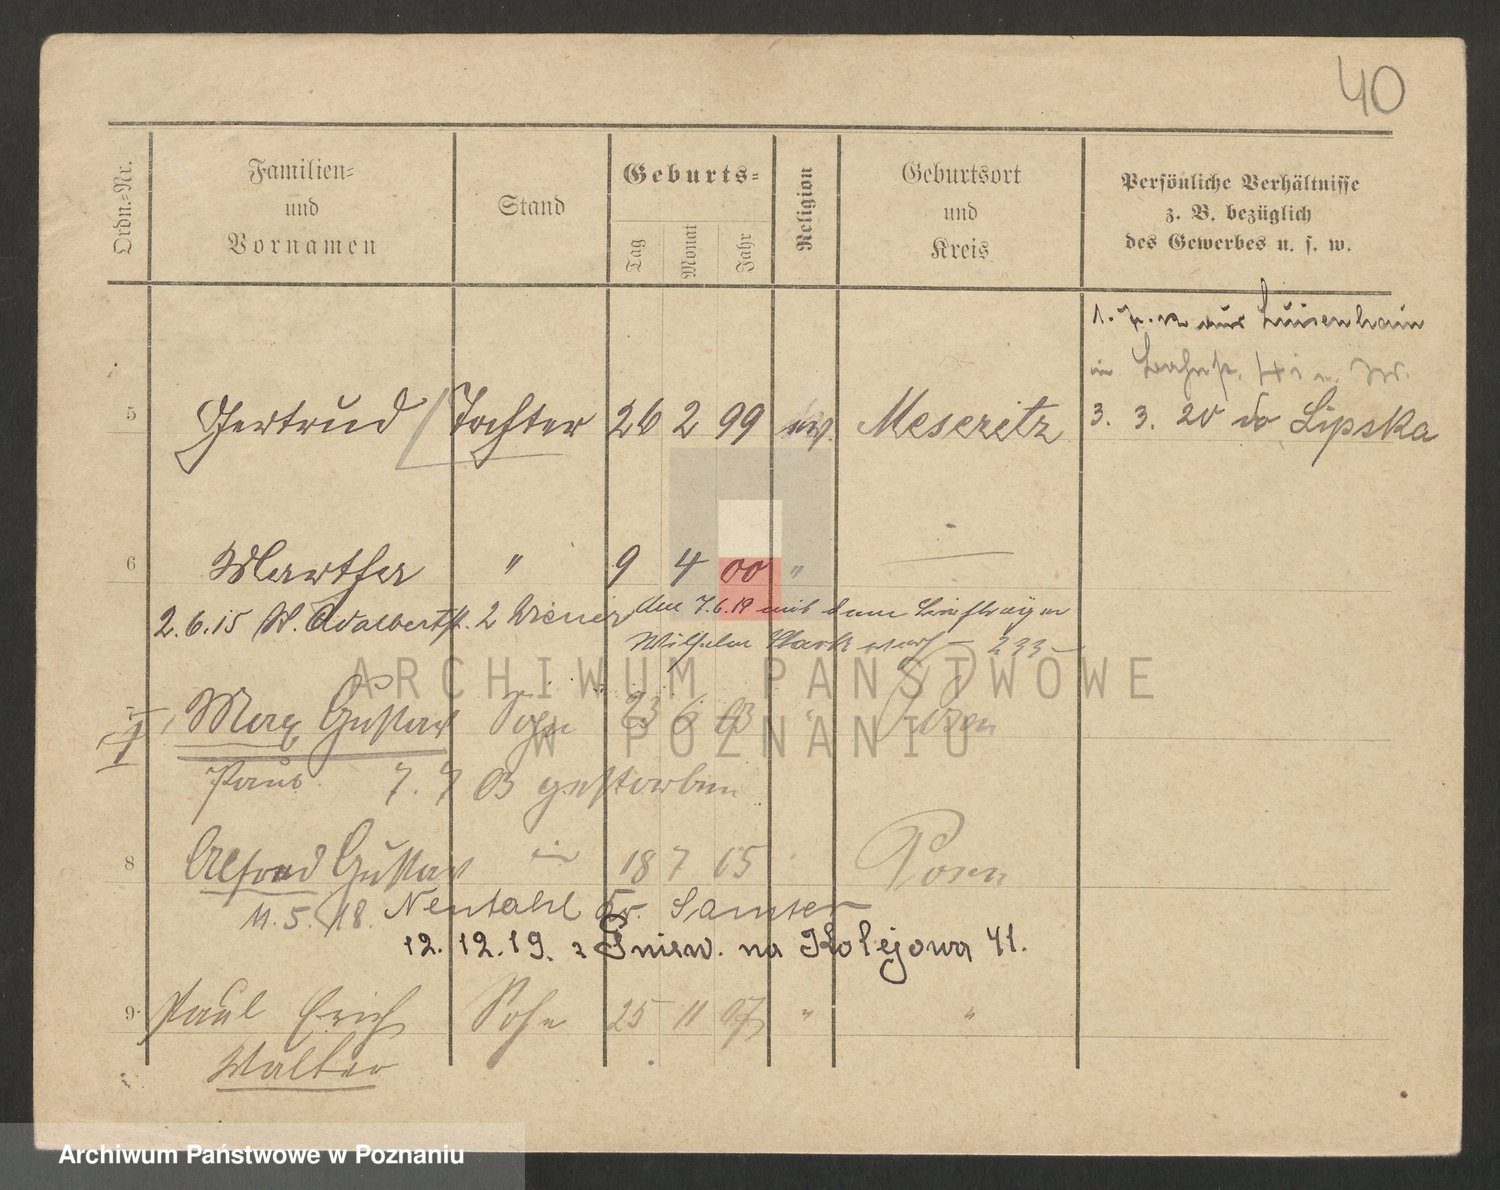 40
Ordn.-Nr.
Familien-
und
Vornamen
Stand
Geburts-
Tag
Monat
Jahr
Religion
Geburtsort
und
Kreis
Persönliche Verhältnisse
z. B. bezüglich
des Gewerbes u. s. w.
aus Luisenhain
in Bahnst.
5 Gertrud Tochter 26 2 99 ev. Meseritz 3. 3. 20 do Lipska
6 Martha " 9 4 00 "
2.6.15 W. Adalbertst. 2
den 7.6.19 mit dem Briefträger
Wilhelm
ARCHIWUM PAŃSTWOWE
W POZNANIU
7 Max Gustav Sohn 23 6 03 " Posen
Paul 7. 7 03 gestorben
8 Alfred Gustav 18 7 05 Posen
11. 5. 18. Neutahl Kr. Samter
12. 12. 19. z Gniew. na Kolejowa 41.
9 Paul Erich Sohn 25 11 07 " "
Walter
Archiwum Państwowe w Poznaniu